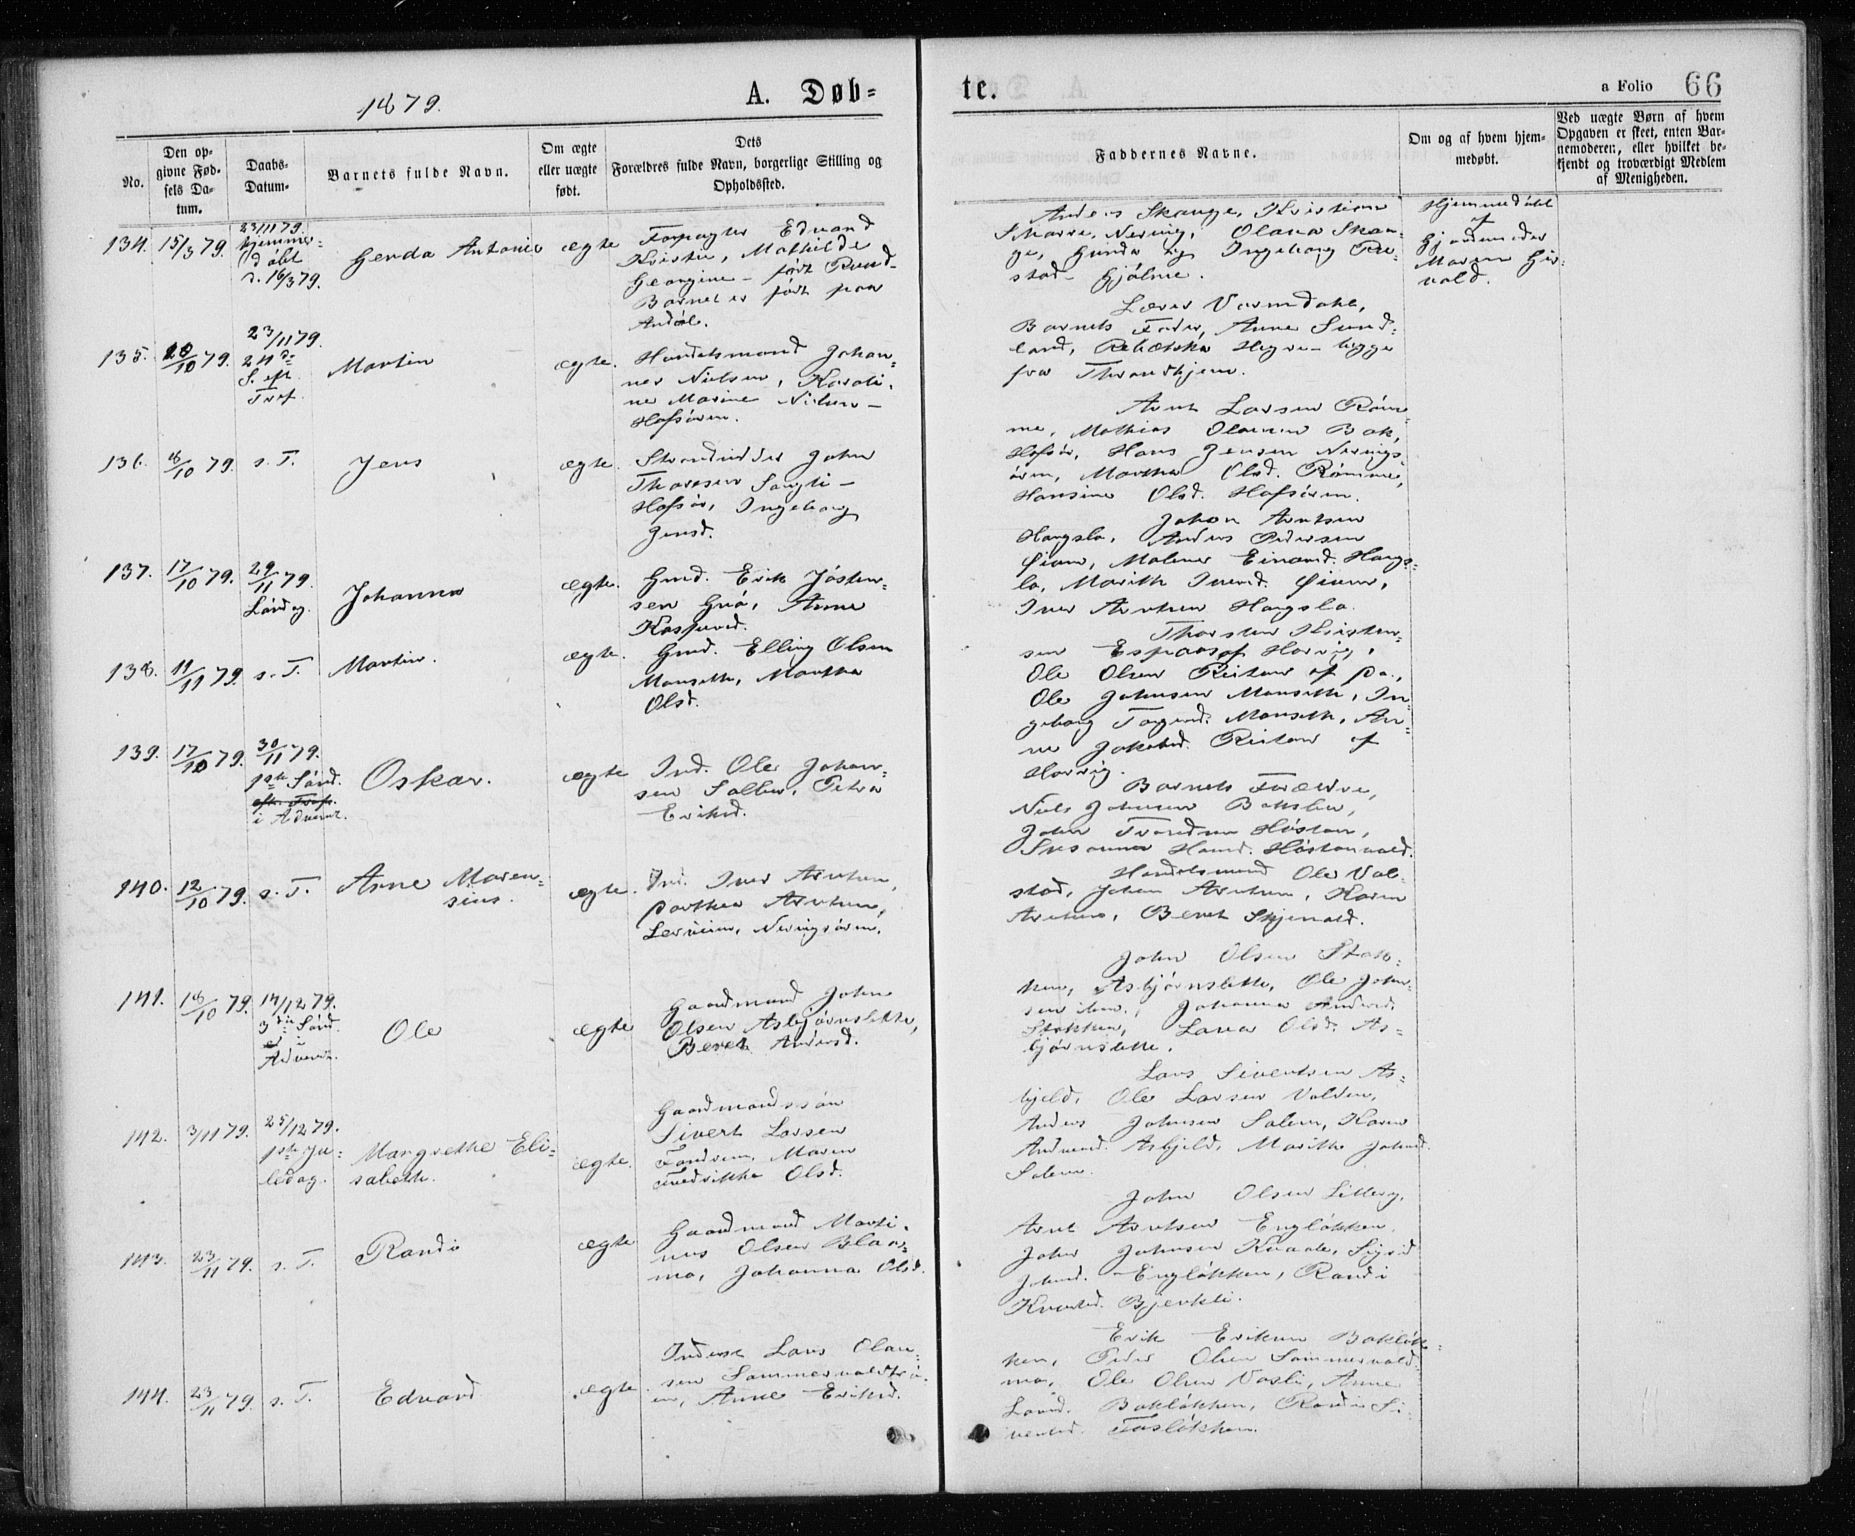 1879.
A. Døb-
te.
a Folio 66
No.
Den op-
givne Fød-
sels Da-
tum.
Daabs-
Datum.
Barnets fulde Navn.
Om ægte
eller uægte
født.
Dets
Forældres fulde Navn, borgerlige Stilling og
Opholdssted.
Faddernes Navne.
Om og af hvem hjem-
medøbt.
Ved uægte Børn af hvem
Opgaven er skeet, enten Bar-
nemoderen, eller hvilket be-
kjendt og troværdigt Medlem
af Menigheden.
134. 15/3 79.
23/11 79.
hjemme-
døbt
d. 16/3 79.
Gerda Antonie
ægte
Forpagter Edvard
Kristie, Mathilde
Georgine - født Rund-
Barnet er født paa
Anders Skauge, Kristian
Olava Skau-
ge, Gunda og Ingeborg
stad - Gjølme.
Hjemmedøbt
af
Gjordemoder
Maren
135. 28/10 79.
23/11 79.
24de
S. eft.
Tref.
Martin
ægte.
Handelsmand Johan-
nes Nielsen, Karoli-
ne Marine Nielsen -
Hofsøren.
Lærer Varmdahl,
Barnets Fader, Anne Sund-
land, Rebækka Hegre - begge
fra Throndhjem.
136. 18/10 79. s. T.
Jens
ægte.
Strandsidder John
Thoresen
Hofsør, Ingeborg
Jensd.
Arnt Larsen Røm-
me, Mathias Olausen Bak,
Hofsør, Hans Jensen Nerings-
øren, Martha Olsd. Rømme,
Hansine Olsd. Hofsøren.
137. 17/10 79.
29/11 79.
Lørdag.
Johanna
ægte.
Gmd. Erik Jøsten-
sen Grø, Anne
Johan Arntsen
Hangslo, Anders Pedersen
Øien, Malene Einarsd. Hangs-
lo, Marith Iversd. Øien,
Iver Arntsen Hangslo.
138. 11/11 79. s. T.
Martin.
ægte.
Gmd. Elling Olsen
Monseth, Martha
Olsd.
Thorsten Kristen-
sen
Ole Olsen
Ole Johnsen Monseth, In-
geborg Monseth, An-
ne
139. 17/10 79.
30/11 79.
1ste Sønd.
eft. Tref.
i Advent.
Oskar.
ægte
Ind. Ole Johan-
sen Petra
Eriksd.
Barnets Forældre,
Niels Johnsen
John Høston,
Susanna Høstonvald.
140. 12/10 79. s. T.
Arne Maren-
sius.
ægte.
Ind. Iver Arntsen,
Dorthea Arntsen,
Neringsøren.
Handelsmand Ole Val-
stad, Johan Arntsen, Karen
Arntsen, Beret
141. 18/10 79.
14/12 79.
3die Sønd.
i
Advent.
Ole
ægte
Gaardmand John
Olsen Asbjørnslette,
Beret Andersd.
John Olsen Stok-
ken, Asbjørnslette, Ole John-
sen Johanna Andersd.
Stokken, Lava Olsd. As-
bjørnslette.
142. 3/11 79.
25/12 79.
1ste Ju-
ledag.
Margrethe Eli-
sabeth.
ægte.
Gaardmandssøn
Sivert Larsen
Maren
Fredrikke Olsd.
Lars Sivertsen As-
bjeld, Ole Larsen Volden,
Anders Johnsen Solem, Karen
Andersd. Asbjeld, Marith Johnsd.
Solem.
143. 23/11 79. s. T.
Randi
ægte
Gaardmand Marti-
nus Olsen Blaas-
mo, Johanna Olsd.
John Olsen
Arnt Arntsen Engløkken,
John Johnsen Sigrid
Johnsd. Engløkken, Randi
Bjerkli.
144. 23/11 79. s. T.
Edvard
ægte.
Inderst Lars Olau-
sen
Anne Eriksd.
Erik Eriksen Bakløk-
ken, Peder Olsen Sommervold-
mo, Ole Olsen Anne
Larsd. Bakløkken, Randi Si-
vertsd.